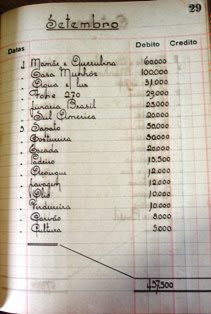 29
Setembro
Datas Debito Credito
1 Mamãe e Querubina 60000
. Casa Munhós 100,000
. Agua e luz 31,000
. Fone 270 29,000
. Livraria Brasil 23000
. Sul America 20000
5 Sapato 50000
. Costureira 30000
. Escada 20000
. Padeiro 15,500
. Açougue 12,000
. Lavagem 12,000
. 10,000
. Verdureira 10,000
. Carvão 8.000
. 5000
437,500